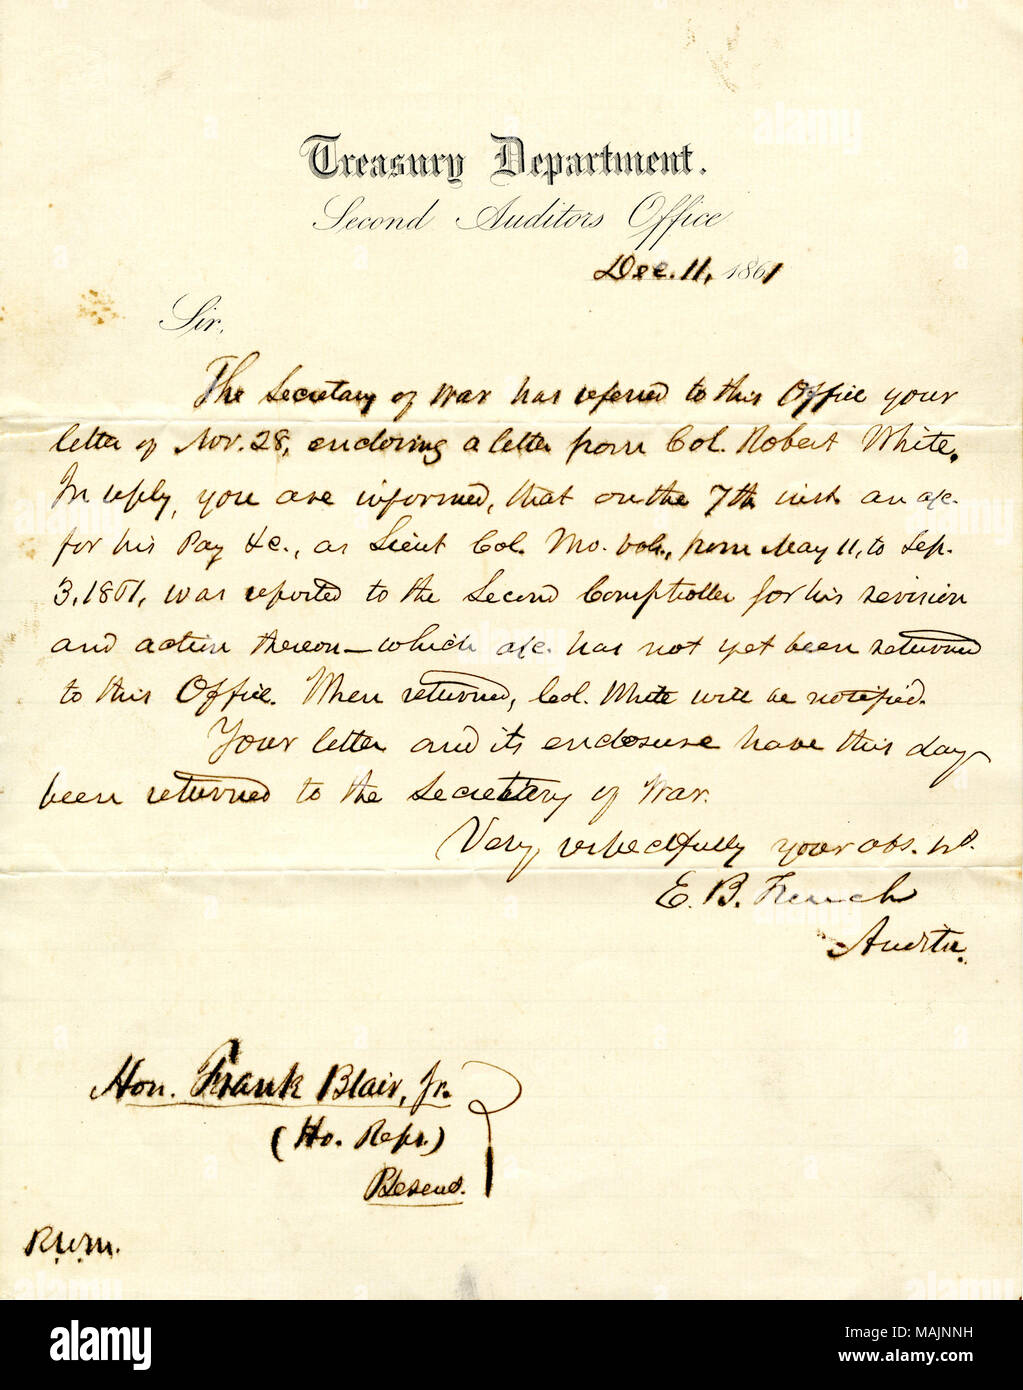 Treasury Department.
Second Auditors Office
Dec. 11, 1861
Sir,
The Secretary of War has referred to this Office your
letter of Nov. 28, enclosing a letter from Col. Robert White.
In reply, you are informed, that on the 7th inst. an a/c.
for his Pay &c., as Lieut Col. Mo. Vols., from May 11, to Sep.
3, 1861, was reported to the Second Comptroller for his revision
and action thereon — which a/c. has not yet been returned
to this Office. When returned, Col. White will be notified.
Your letter and its enclosure have this day
been returned to the Secretary of War.
Very respectfully your obs. st.
E. B. French
Auditor.
Hon. Frank Blair, Jr.
(Ho. Repr.)
Present.
R.W.M.
alamy
Image ID: MAJNNH
www.alamy.com